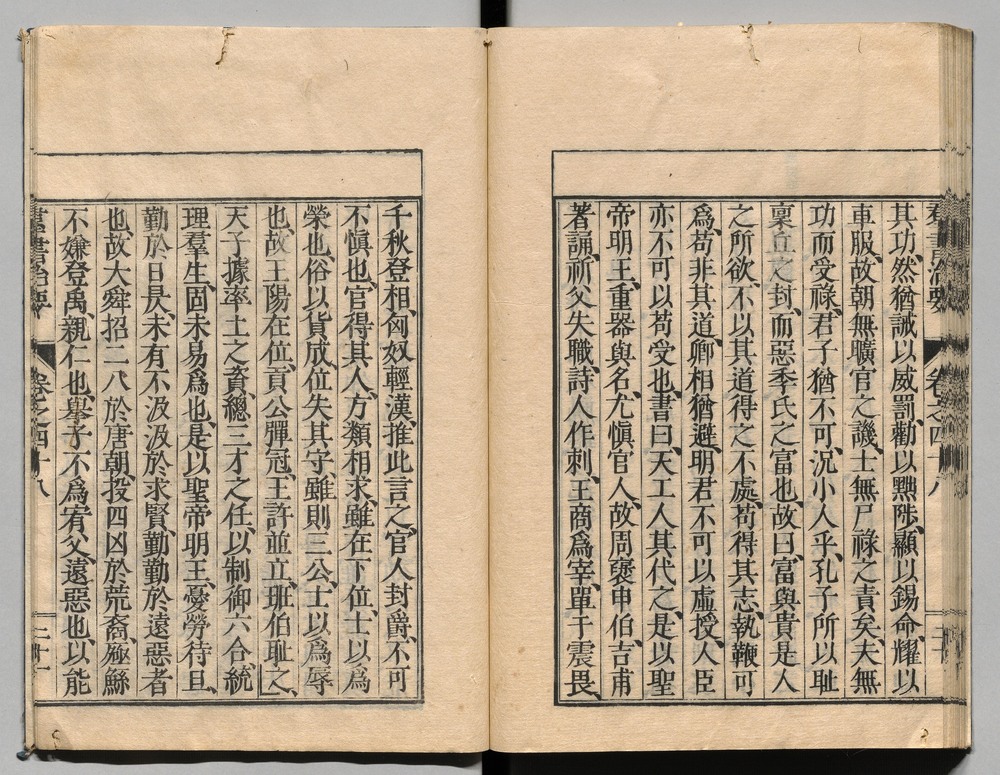 羣書治要 卷之四十八
其功、然猶誡以威罰、勸以黜陟、顯以錫命、耀以
車服、故朝無曠官之譏、士無尸祿之責矣、夫無
功而受祿、君子猶不可、況小人乎、孔子所以恥
稟丘之封、而惡季氏之富也、故曰、富與貴、是人
之所欲、不以其道得之不處、苟得其志、執鞭可
爲、苟非其道、卿相猶避、明君不可以虛授、人臣
亦不可以苟受也、書曰、天工人其代之、是以聖
帝明王、重器與名、尤愼官人、故周褒申伯、吉甫
著誦、祈父失職、詩人作刺、王商爲宰、單于震畏、
千秋登相、匈奴輕漢、推此言之、官人封爵、不可
不愼也、官得其人、方類相求、雖在下位、士以爲
榮也、俗以貨成、位失其守、雖則三公、士以爲辱
也、故王陽在位、貢公彈冠、王許並立、班伯恥之、
天子據率土之資、總三才之任、以制御六合、統
理羣生、固未易爲也、是以聖帝明王、憂勞待旦、
勤於日昃、未有不汲汲於求賢、勤勤於遠惡者
也、故大舜招二八於唐朝、投四凶於荒裔、殛鯀
不嫌登禹、親仁也、舉子不爲宥父、遠惡也、以能
羣書治要 卷之四十八 二十一